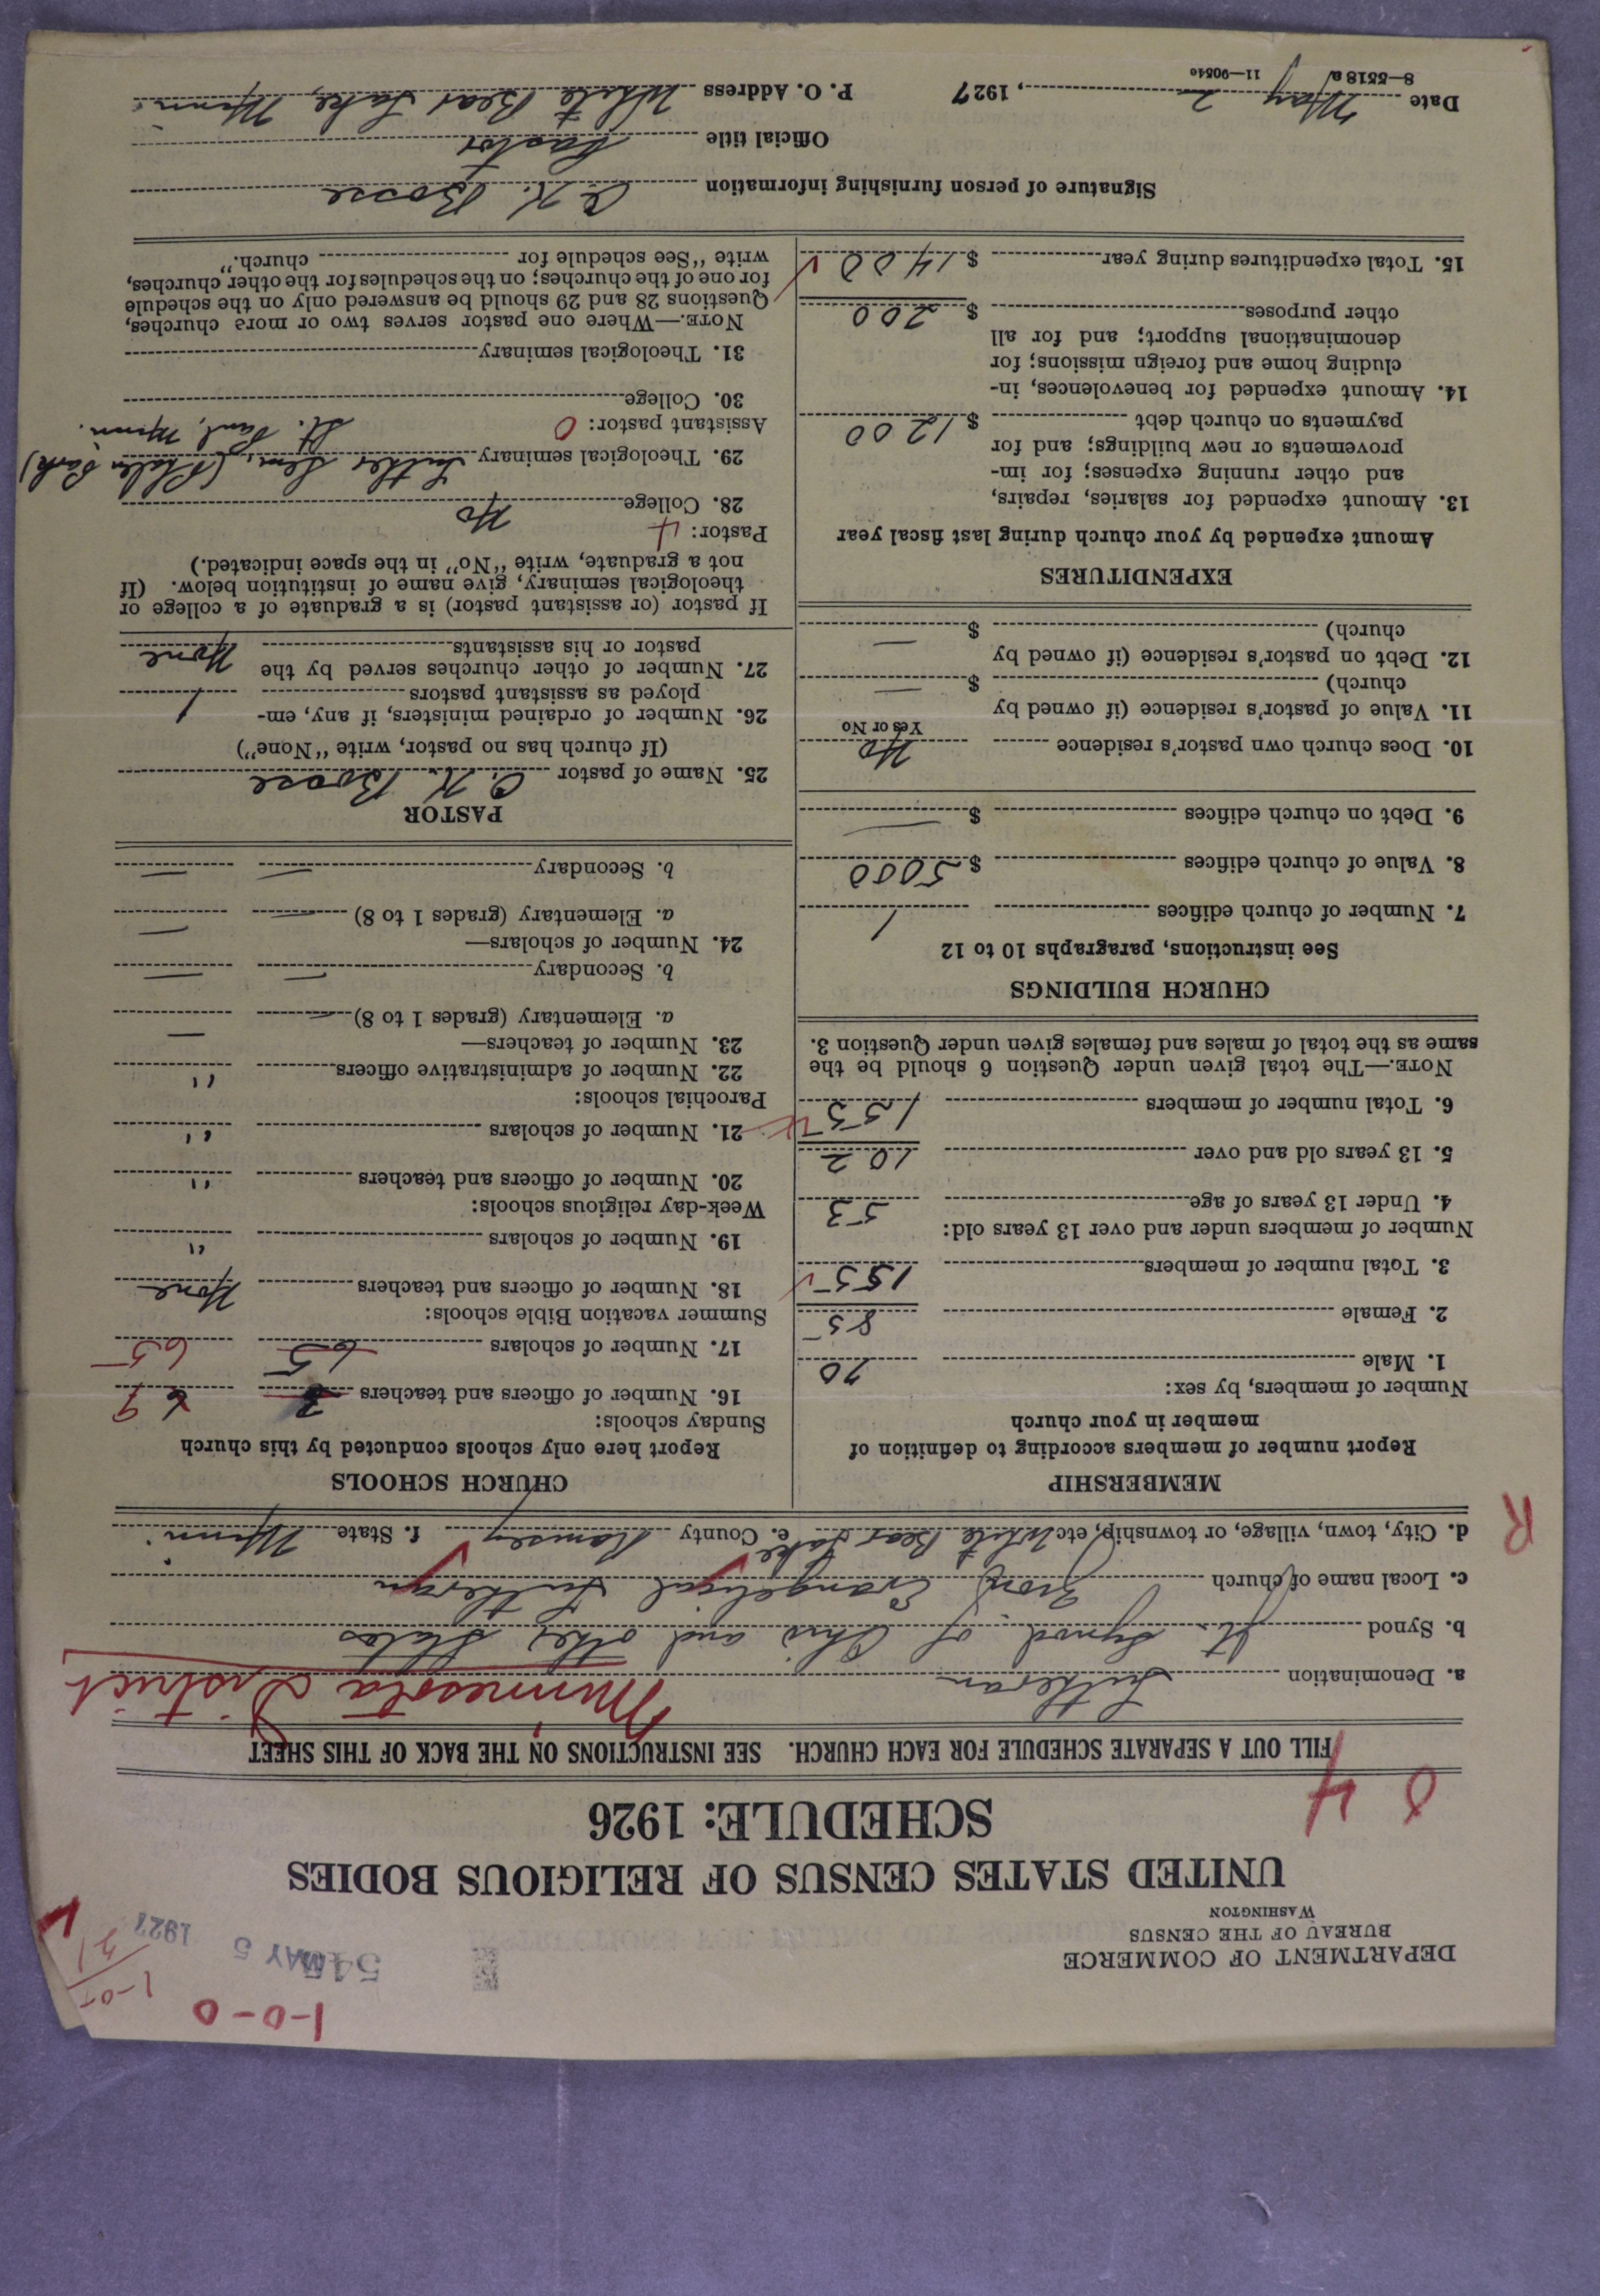 1-0-0
1-0-
DEPARTMENT OF COMMERCE
BUREAU OF THE CENSUS
WASHINGTON
MAY 5 1927
UNITED STATES CENSUS OF RELIGIOUS BODIES
SCHEDULE: 1926
0 4
FILL OUT A SEPARATE SCHEDULE FOR EACH CHURCH. SEE INSTRUCTIONS ON THE BACK OF THIS SHEET
a. Denomination Lutheran Minnesota District
b. Synod Jt. Synod of Ohio and other States
c. Local name of church Evangelical Lutheran
d. City, town, village, or township, etc White Bear Lake e. County Ramsey f. State Minn.
R
MEMBERSHIP
Report number of members according to definition of
member in your church
Number of members, by sex:
1. Male 70
2. Female 85
3. Total number of members 155
Number of members under and over 13 years old:
4. Under 13 years of age 53
5. 13 years old and over 102
6. Total number of members 155
NOTE.—The total given under Question 6 should be the
same as the total of males and females given under Question 3.
CHURCH BUILDINGS
See instructions, paragraphs 10 to 12
7. Number of church edifices 1
8. Value of church edifices $ 5000
9. Debt on church edifices $ —
10. Does church own pastor's residence No
Yes or No
11. Value of pastor's residence (if owned by
church) $ —
12. Debt on pastor's residence (if owned by
church) $ —
EXPENDITURES
Amount expended by your church during last fiscal year
13. Amount expended for salaries, repairs,
and other running expenses; for im-
provements or new buildings; and for
payments on church debt $ 1200
14. Amount expended for benevolences, in-
cluding home and foreign missions; for
denominational support; and for all
other purposes $ 200
15. Total expenditures during year $ 1400
CHURCH SCHOOLS
Report here only schools conducted by this church
Sunday schools:
16. Number of officers and teachers 9
17. Number of scholars 65 65
Summer vacation Bible schools:
18. Number of officers and teachers None
19. Number of scholars "
Week-day religious schools:
20. Number of officers and teachers "
21. Number of scholars "
Parochial schools:
22. Number of administrative officers "
23. Number of teachers—
a. Elementary (grades 1 to 8) — —
b. Secondary — —
24. Number of scholars—
a. Elementary (grades 1 to 8) — —
b. Secondary — —
PASTOR
25. Name of pastor C. K. Boose
(If church has no pastor, write "None")
26. Number of ordained ministers, if any, em-
ployed as assistant pastors 1
27. Number of other churches served by the
pastor or his assistants None
If pastor (or assistant pastor) is a graduate of a college or
theological seminary, give name of institution below. (If
not a graduate, write "No" in the space indicated.)
Pastor: 4
28. College No
29. Theological seminary Luther Sem. (Phalen Park)
St. Paul, Minn.
Assistant pastor: 0
30. College
31. Theological seminary
NOTE.—Where one pastor serves two or more churches,
Questions 28 and 29 should be answered only on the schedule
for one of the churches; on the schedules for the other churches,
write "See schedule for church."
Signature of person furnishing information C. K. Boose
Official title Pastor
Date May 2, 1927 P. O. Address White Bear Lake, Minn.
8—5518a 11—9054c